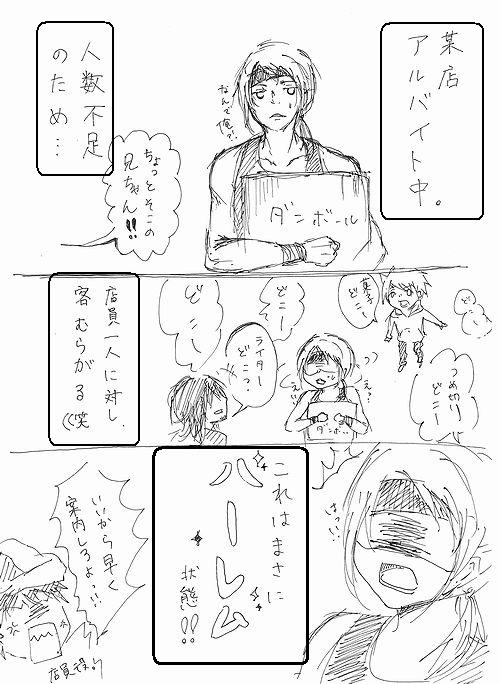 某店
アルバイト中。
なんで俺?
ダンボール
人数不足
のため…
ちょっとそこの
兄ちゃん!!
ど
こ
菓子
どこー
どこー
どこー
つめ切り
どこー
え?
え?
ダンボール
ライター
どこー?
店員一人に対し
客むらがる((笑
はっ!!
これはまさに
ハーレム
状態!!
いいから早く
案内しろよっ!!
店員役り